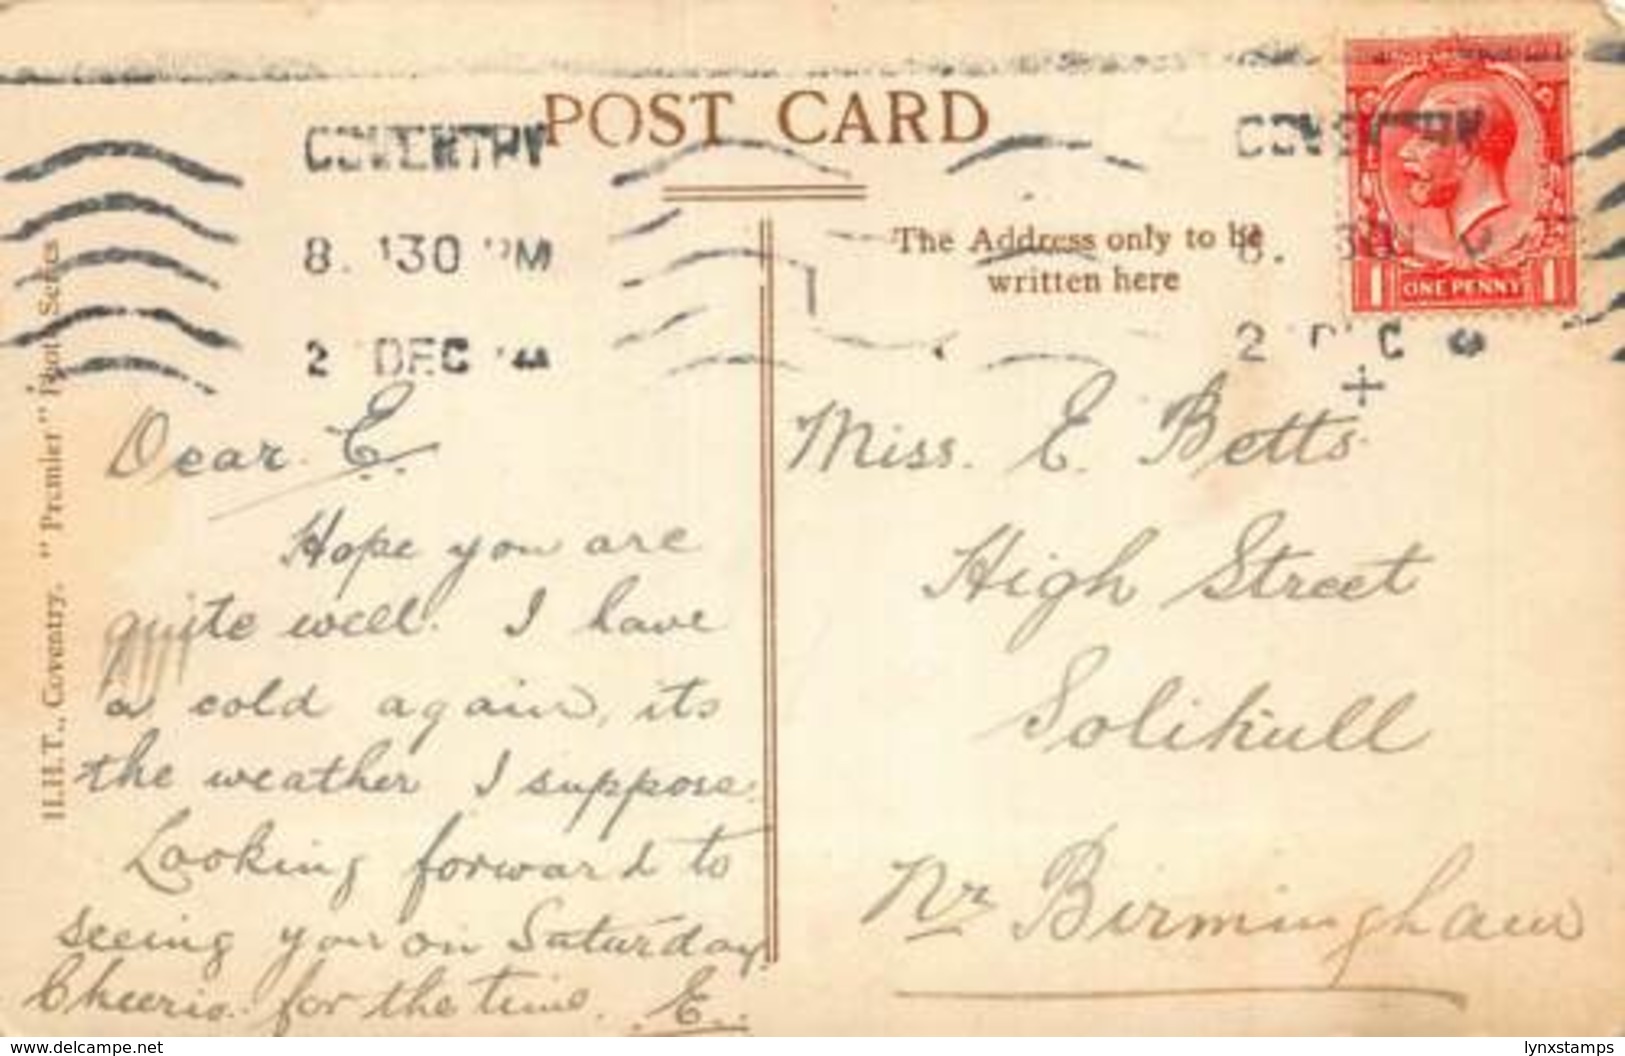 POST CARD
COVENTRY
8. 30 PM
2 DEC
COVENTRY
8. 30
2 DEC
The Address only to be
written here
ONE PENNY
1 1
H.H.T., Coventry. "Premier" Photo Series
Dear E.
Hope you are
quite well. I have
a cold again, its
the weather I suppose.
Looking forward to
seeing you on Saturday.
Cheerio. for the time. E.
Miss. E. Betts.
High Street
Solihull
Nr Birmingham
www.delcampe.net
lynxstamps